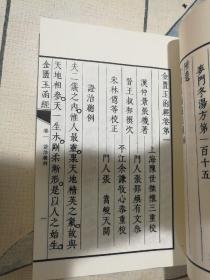 麥門冬湯方第一百十五
金匱玉函經卷第一
漢仲景張機著
上海陳世傑懷三重校
晉王叔和撰次
門人張邦 有文參
宋林億等校正
平江余謙牧心參重校
門人張嵩 天
證治總例
夫二儀之內惟人最靈禀天地精英之氣故與
天地相參天一生水剛柔漸形是以人之始生
金匱玉函經 卷一 證治總例